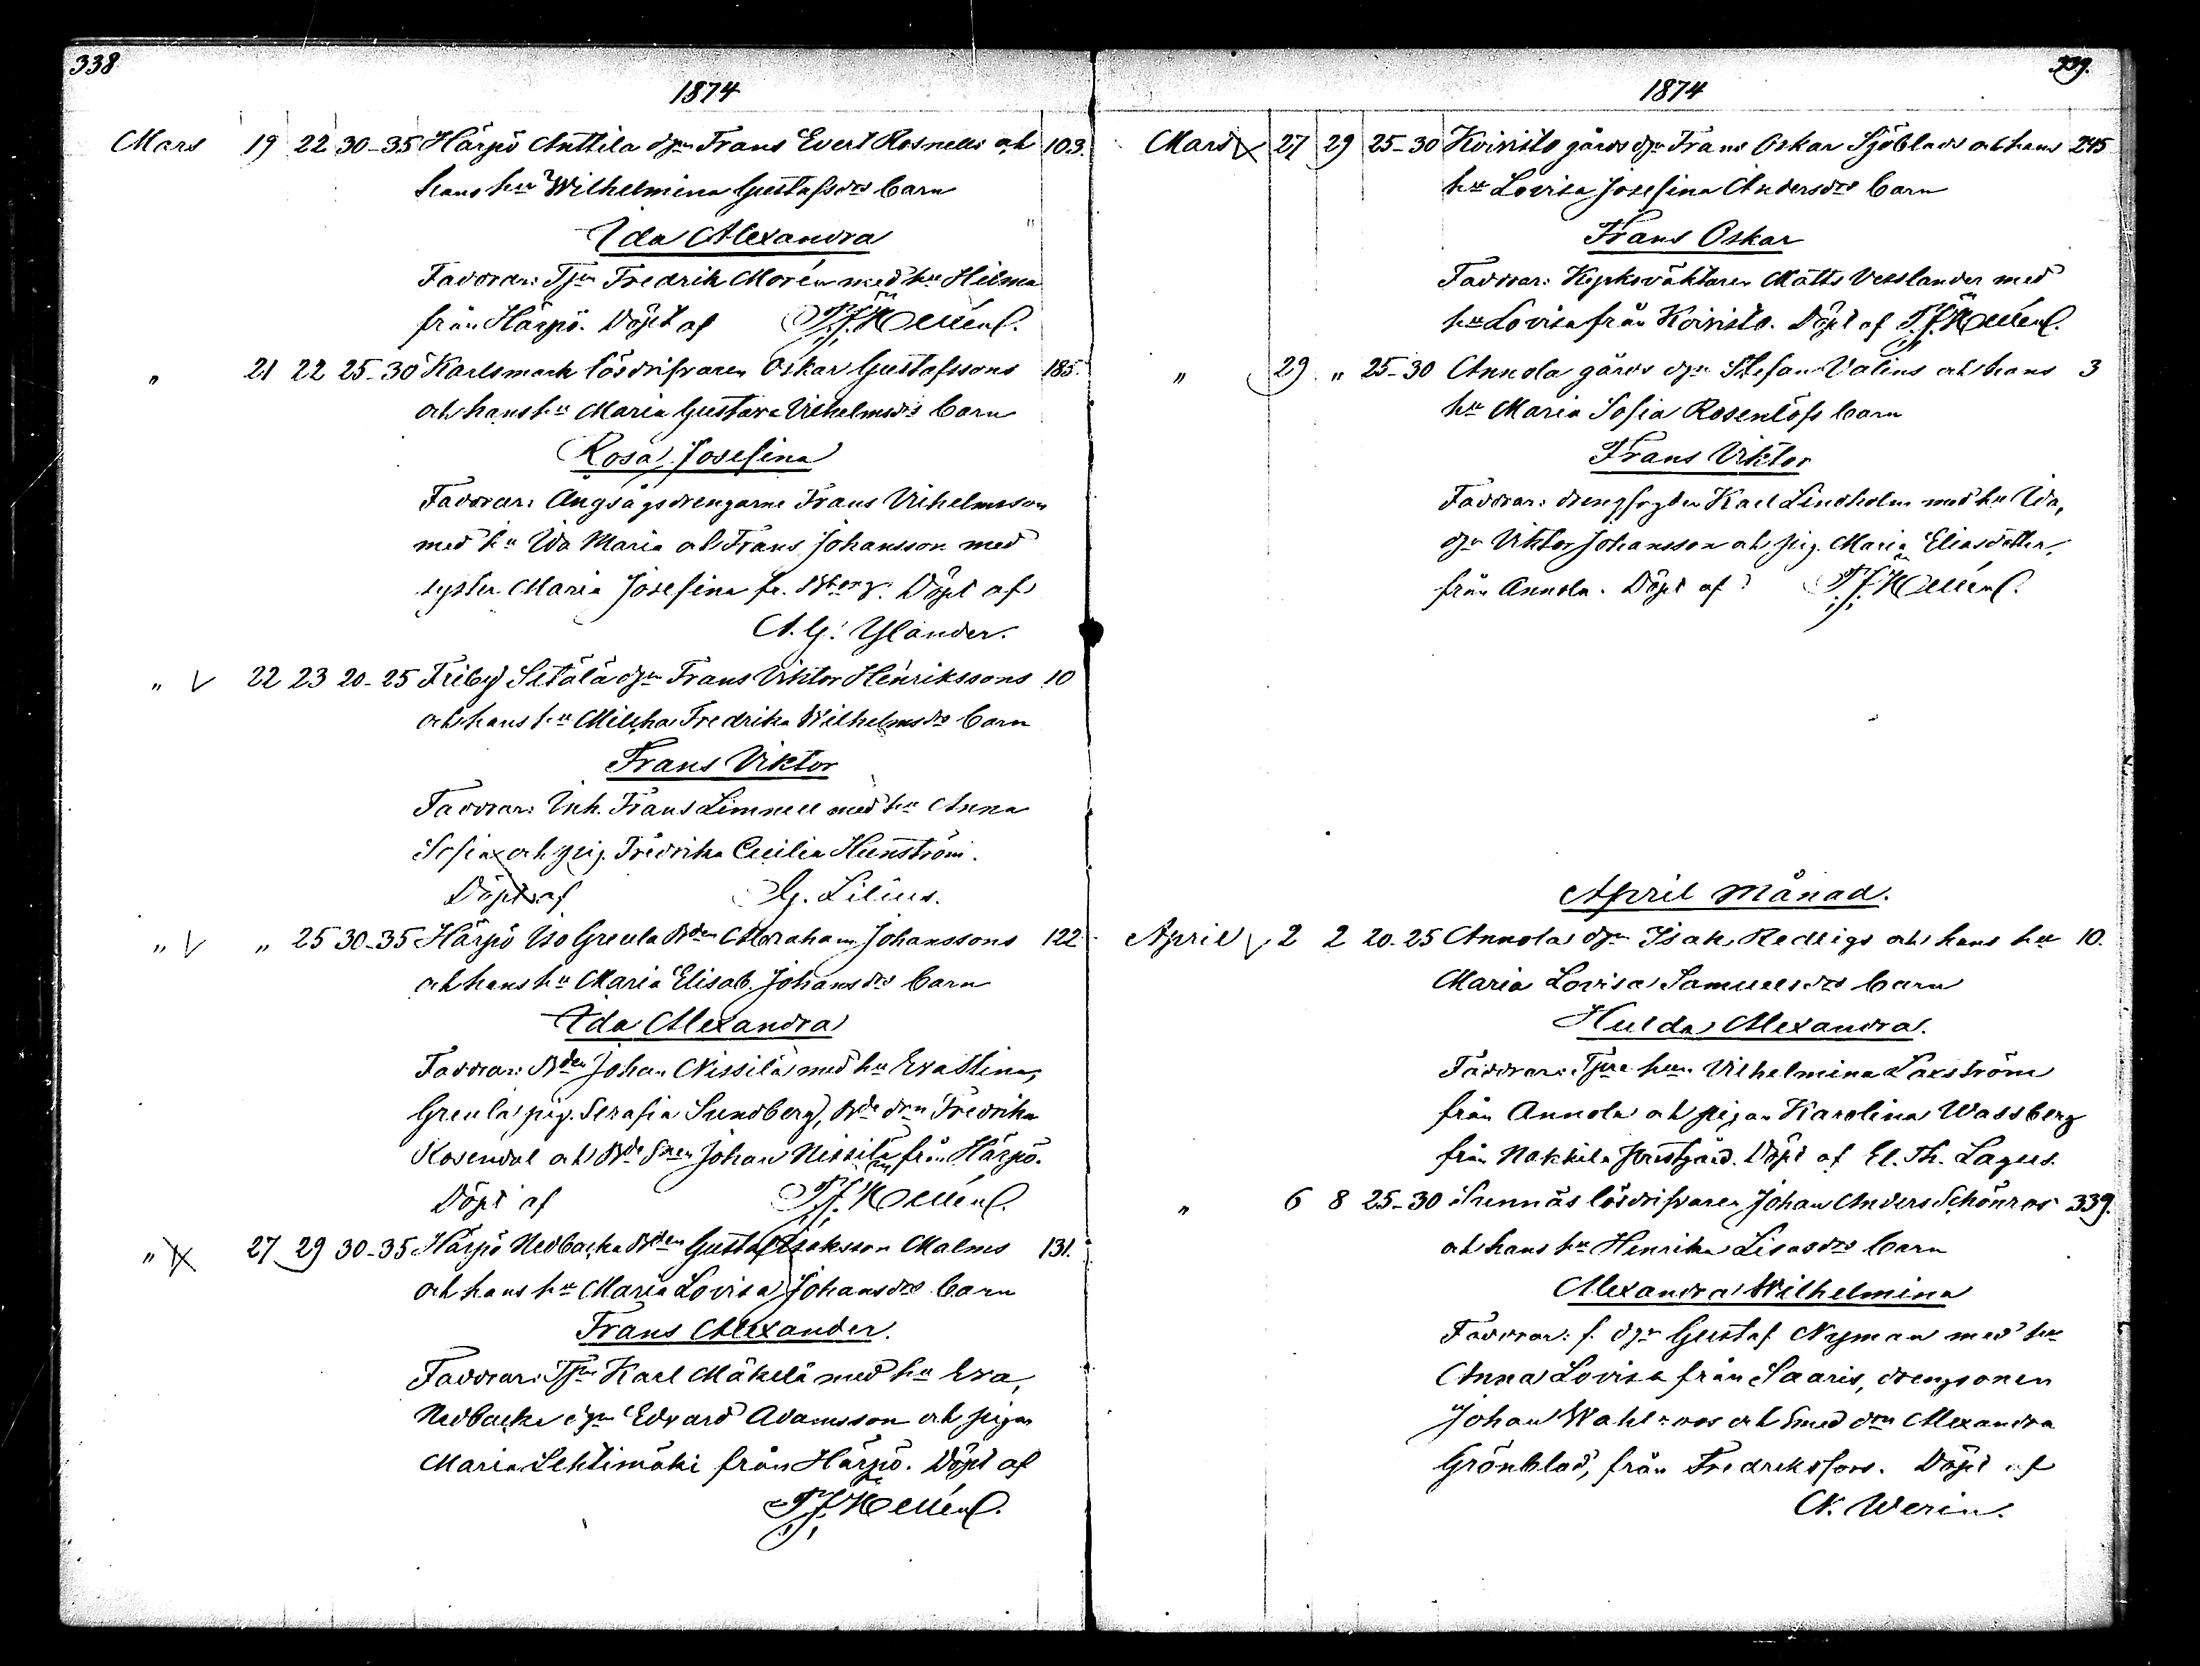 338
1874
Mars 19 22 30-35 Härpö Anttila dgn Frans Evert Rosnells och 103.
hans hu Wilhelmina Gustafsdrs barn
Ida Alexandra
Faddrar: Tjn Fredrik Morén med hu Hilma
från Härpö. Döpt af
" 21 22 25-30 Karlsmark lösdrifvaren Oskar Gustafssons 185.
och hans hu Maria Gustava Vilhelmsdrs barn
Rosa Josefina
Faddrar: Ångsågsdrengarne Frans Vilhelmsson
med hu Ida Maria och Frans Johansson med
syster Maria Josefina fr. Döpt af
A. G. Yländer.
" 22 23 20-25 Friby Setälä dgn Frans Viktor Henrikssons 10
och hans hu Milcha Fredrika Wilhelmsdrs barn
Frans Viktor
Faddrar: Inh. Frans Limnell med hu Anna
Sofia och pig. Fredrika Cecilia Hellström.
Döpt af G. Lilius.
" " 25 30-35 Härpö Iso Greula Bden Abraham Johanssons 122
och hans hu Maria Elisab. Johansdrs barn
Ida Alexandra
Faddrar: Bden Johan Nissilä med hu Eva Stina,
Greula pig. Serafia Sundberg, Bde drn Fredrika
Rosendal och Bde Snen Johan Nissilä från Härpö.
Döpt af
" 27 29 30-35 Härpö Nedbacka Bden Gustaf Isaksson Malms 131.
och hans hu Maria Lovisa Johansdrs barn
Frans Alexander.
Faddrar: Tjn Karl Mäkelä med hu Eva,
Nedbacka dgn Edvard Adamsson och pigan
Maria Lehtimäki från Härpö. Döpt af
339.
1874
Mars 27 29 25-30 Koivisto gårds dgn Frans Oskar Sjöblads och hans 245
hu Lovisa Josefina Andersdrs barn
Frans Oskar
Faddrar: Matts Vesslander med
hu Lovisa från Koivisto. Döpt af
" 29 " 25-30 Annola gårds dgn Stefan Valins och hans 3
hu Maria Sofia Rosenlöfs barn
Frans Viktor
Faddrar: drengfogden Karl Lindholm med hu Ida,
dgn Viktor Johansson och pig. Maria Eliasdotter,
från Annola. Döpt af
April Månad.
April 2 2 20-25 Annola dgn Isak Redligs och hans hu 10.
Maria Lovisa Samuelsdrs barn
Hulda Alexandra.
Faddrar: Tjne hun Vilhelmina Laxström
från Annola och pigan Karolina Wassberg
från Nakkila Prestgård. Döpt af El. Th. Lagus.
" 6 8 25-30 Sunnäs lösdrifvaren Johan Anders Schönros 339.
och hans hu Henrika Lisasdrs barn
Alexandra Wilhelmina
Faddrar: f. dgn Gustaf Nyman med hu
Anna Lovisa från Saaris, drengsonen
Johan Wahlroos och Smed drn Alexandra
Grönblad, från Fredriksfors. Döpt af
N. Werin.